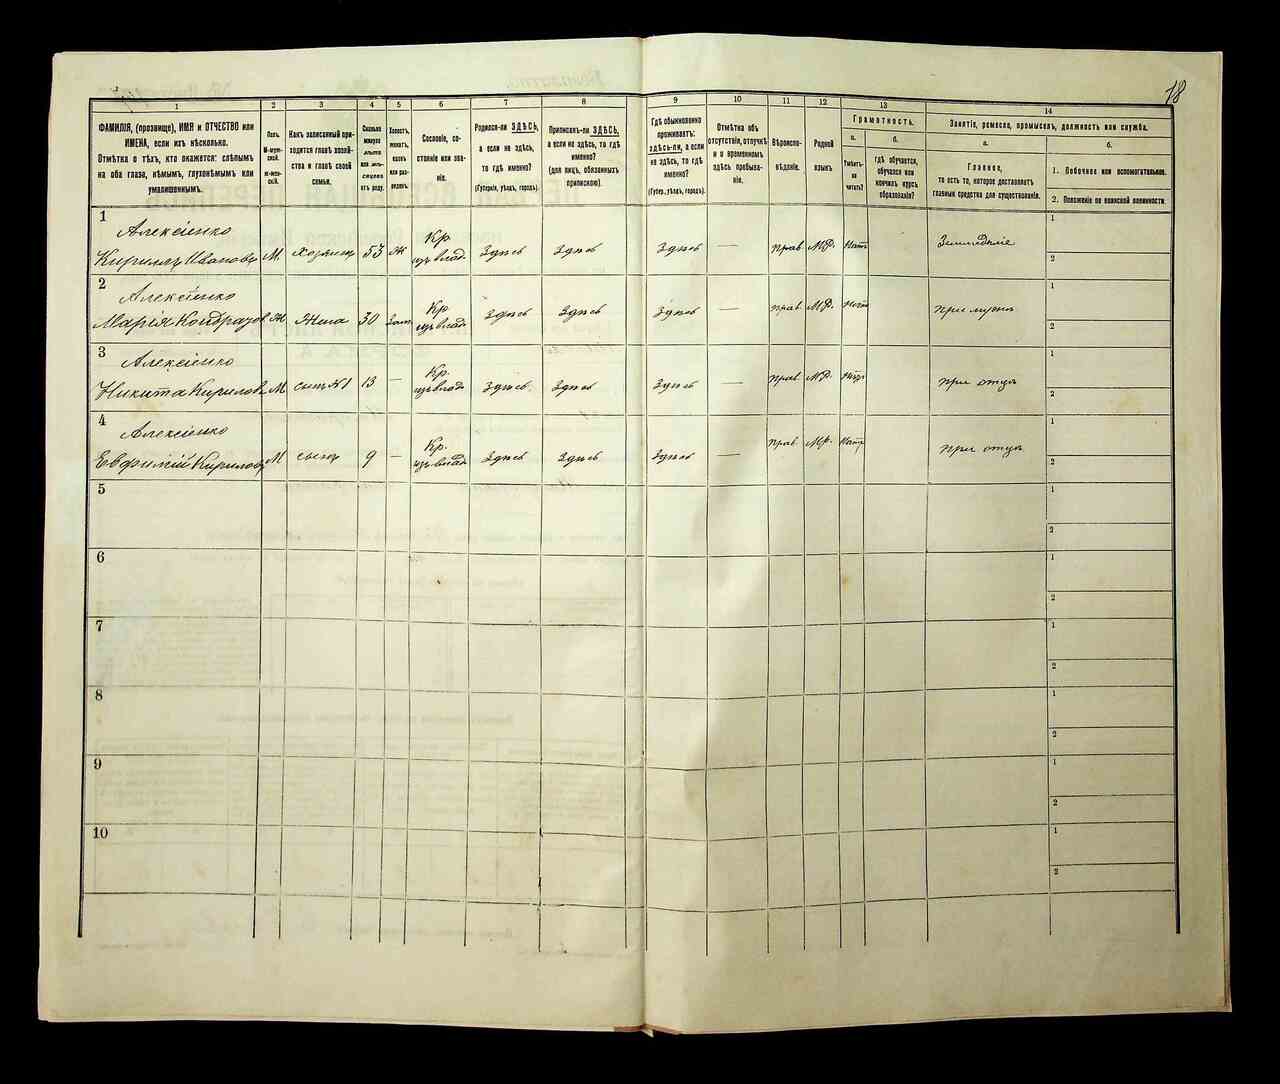 18
1
2
3
4
5
6
7
8
9
10
11
12
13
14
ФАМИЛІЯ, (прозвище), ИМЯ и ОТЧЕСТВО или
ИМЕНА, если ихъ нѣсколько.
Отмѣтка о тѣхъ, кто окажется: слѣпымъ
на оба глаза, нѣмымъ, глухонѣмымъ или
умалишоннымъ.
Полъ.
М-мужской.
Ж-женскій.
Какъ записанный приходится главѣ хозяйства и главѣ своей
семьи.
Сколько
минуло
лѣтъ
или мѣсяцевъ
отъ роду.
Холостъ,
женатъ,
вдовъ
или разведенъ
Сословіе, состояніе или званіе.
Родился-ли ЗДѢСЬ,
а если не здѣсь,
то гдѣ именно?
(Губернія, уѣздъ, городъ).
Приписанъ-ли ЗДѢСЬ,
а если не здѣсь, то гдѣ
именно?
(для лицъ, обязанныхъ
припискою).
Гдѣ обыкновенно
проживаетъ:
здѣсь-ли, а если
не здѣсь, то гдѣ
именно?
(Губер., уѣздъ, городъ).
Отмѣтка объ
отсутствіи, отлучкѣ
и о временномъ
здѣсь пребываніи.
Вѣроисповѣданіе.
Родной
языкъ.
Грамотность.
а.
Умѣетъ-ли
читать?
б.
гдѣ обучается,
обучался или
кончилъ курсъ
образованія?
Занятіе, ремесло, промыселъ, должность или служба.
а.
Главное,
то есть то, которое доставляетъ
главныя средства для существованія.
б.
1. Побочное или вспомогательное.
2. Положеніе по воинской повинности.
1
Алексіенко
Кириллъ Ивановъ М. хозяинъ 53 Ж Кр. изъ влад. Здѣсь Здѣсь Здѣсь — прав. МР. Нѣтъ Земледѣліе
1
2
2
Алексіенко
Марія Кондратов Ж Жена 30 Зам. Кр. изъ влад. Здѣсь Здѣсь Здѣсь — прав. МР. Нѣтъ при мужѣ
1
2
3
Алексіенко
Никита Кирилов М сынъ №1 13 — Кр. изъ влад. Здѣсь Здѣсь Здѣсь — прав. МР. Нѣтъ при отцѣ
1
2
4
Алексіенко
Евфимій Кириловъ М сынъ 9 — Кр. изъ влад. Здѣсь Здѣсь Здѣсь — прав. МР. Нѣтъ при отцѣ
1
2
5
1
2
6
1
2
7
1
2
8
1
2
9
1
2
10
1
2